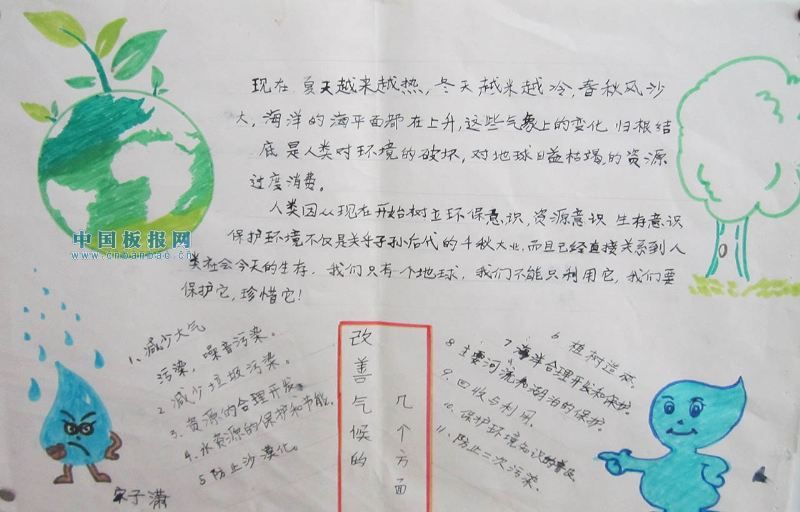 现在夏天越来越热，冬天越来越冷，春秋风沙
大，海洋的海平面都在上升，这些气象上的变化归根结
底是人类对环境的破坏，对地球日益枯竭的资源
过度消费。
人类因从现在开始树立环保意识，资源意识 生存意识
保护环境不仅是关乎子孙后代的千秋大业，而且已经直接关系到人
类社会今天的生存．我们只有一个地球，我们不能只利用它，我们要
保护它，珍惜它！
中国板报网
www.cnbanbao.cn
1、减少大气
污染，噪音污染。
2 减少垃圾污染。
3、资源的合理开发。
4、水资源的保护和节能．
5 防止沙漠化。
改善气候的
几个方面
6 植树造
7 海洋合理开发和保护。
8 主要河流和湖泊的保护。
9、回收与利用．
10、保护环境知识的普及
11、防止二次污染．
宋子潇